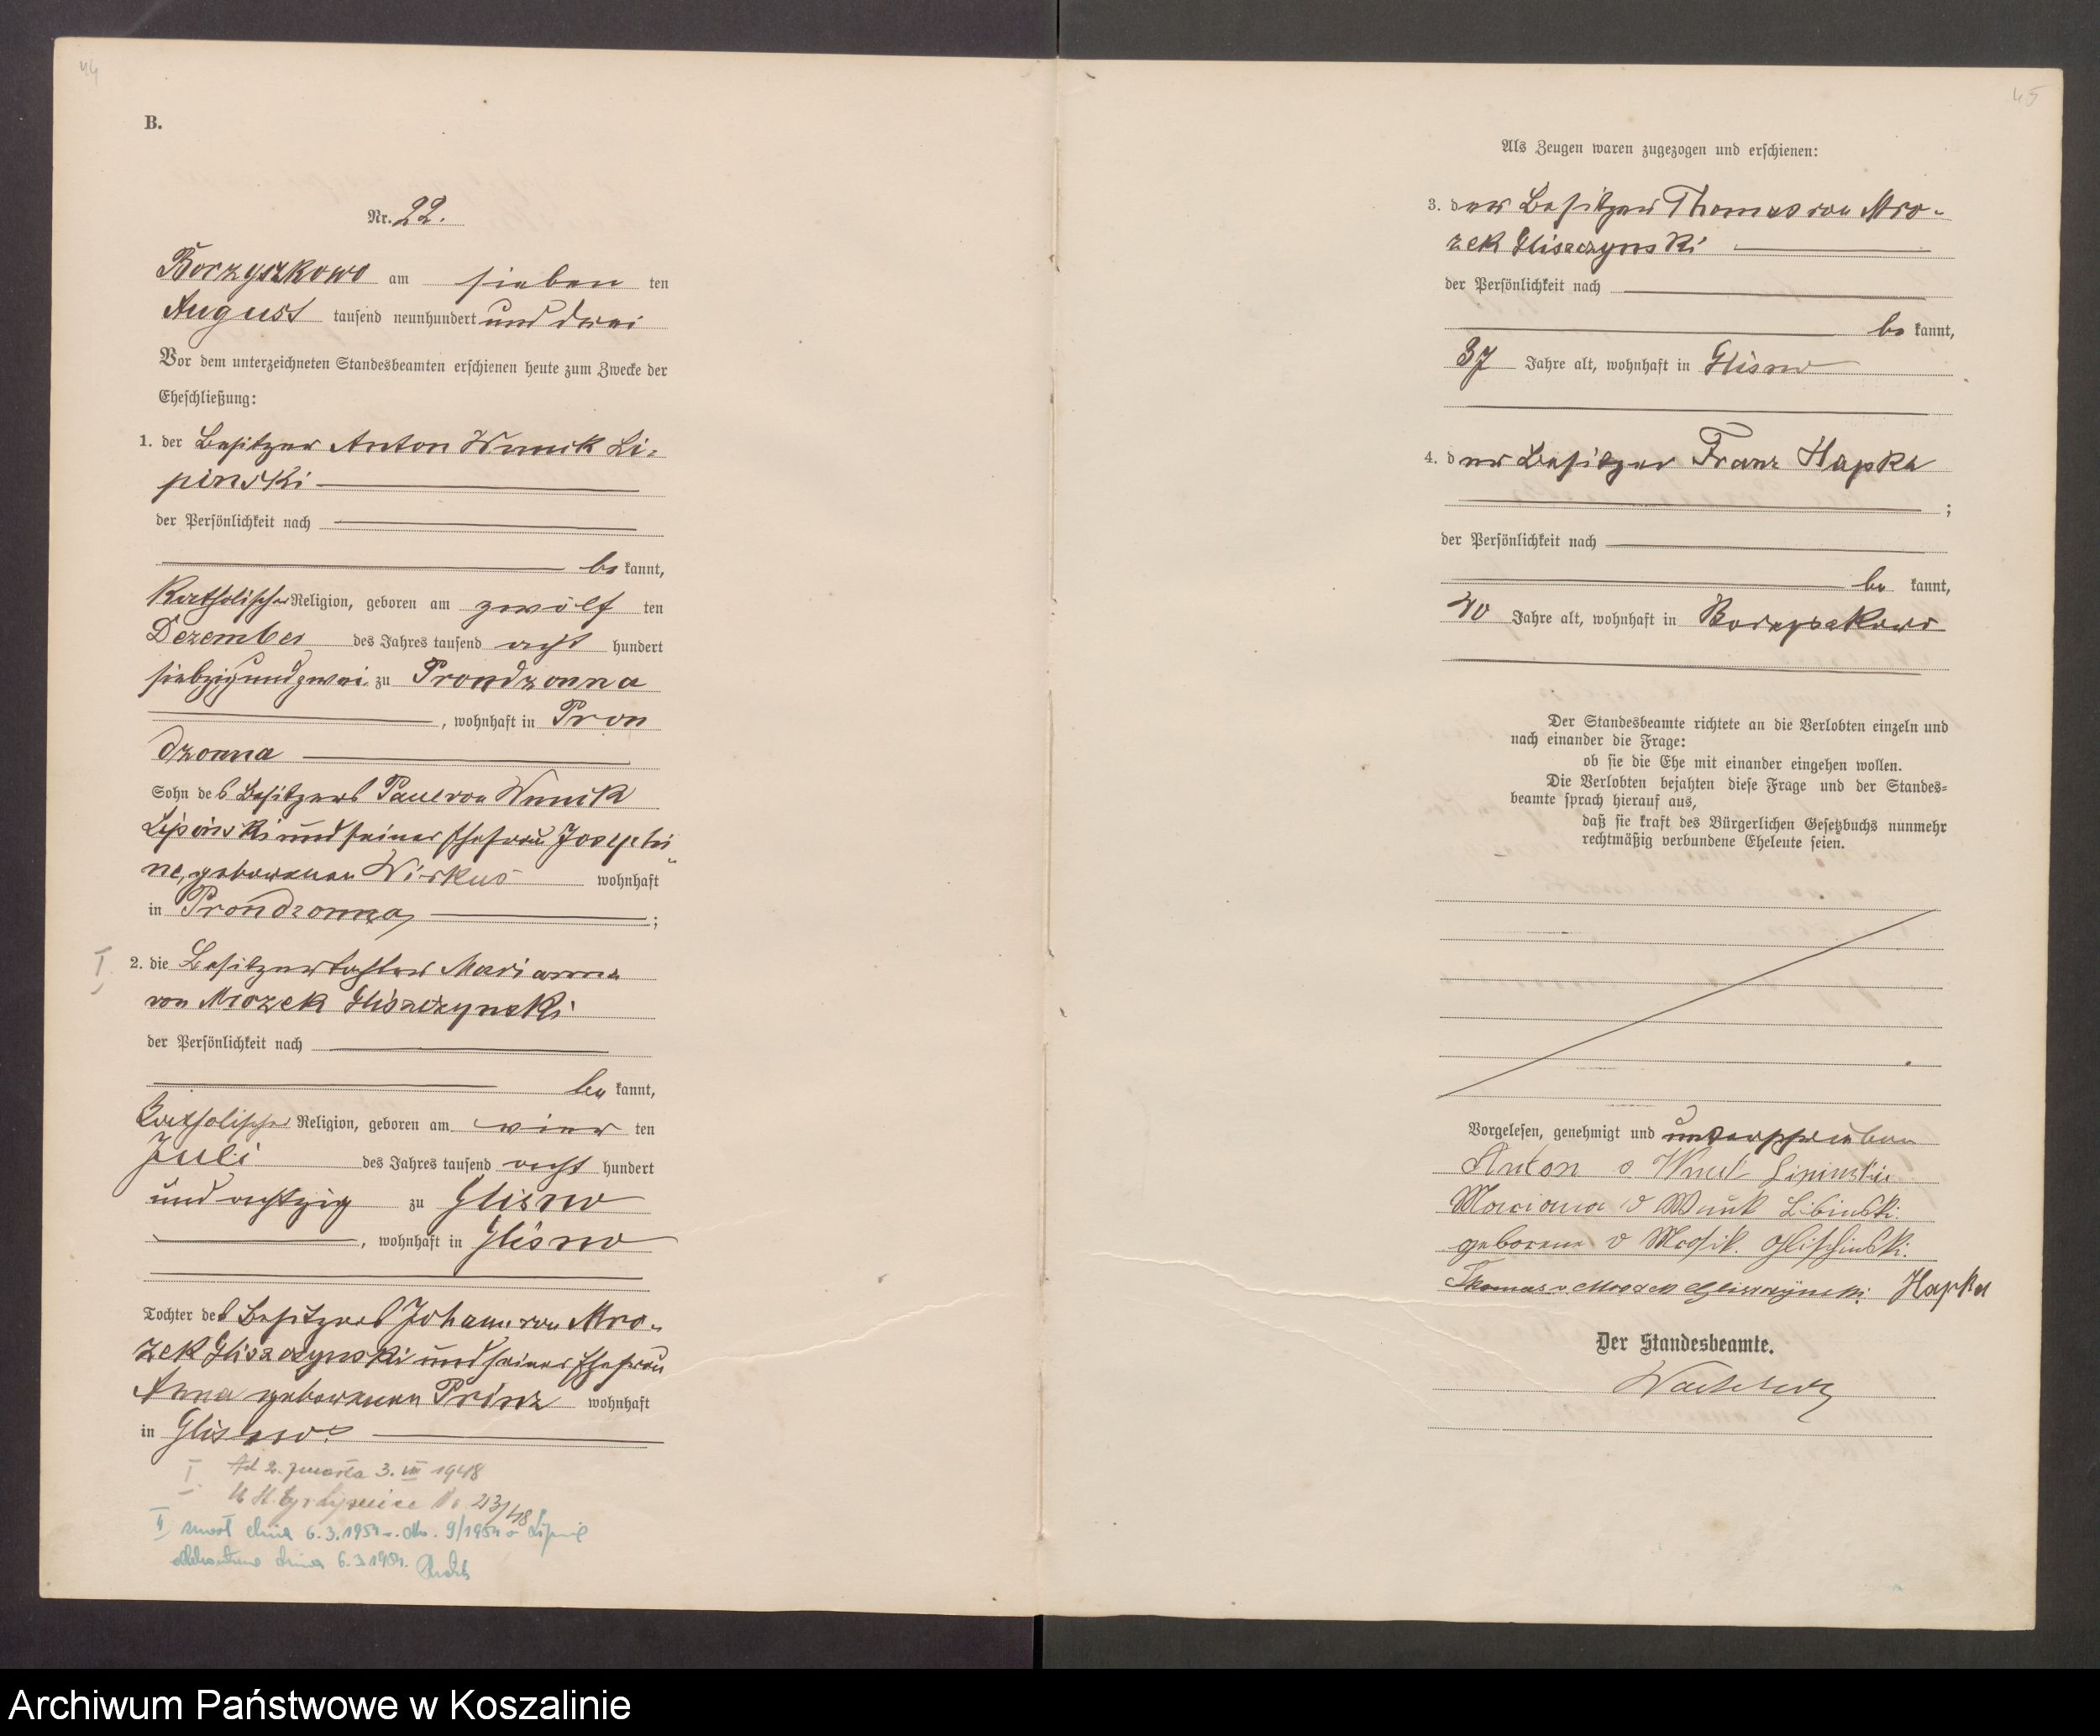 44
B.
Nr. 22.
Borzyszkowo am sieben ten
August tausend neunhundert und drei
Vor dem unterzeichneten Standesbeamten erschienen heute zum Zwecke der
Eheschließung:
1. der Besitzer Anton Wnuck Li-
pinski
der Persönlichkeit nach
be kannt,
katholischer Religion, geboren am zwölf ten
Dezember des Jahres tausend acht hundert
siebzig und zwei zu Prondzonna
, wohnhaft in Pron
dzonna
Sohn des Besitzers Paul von Wnuck
Lipinski und seiner Ehefrau Josephi
ne, geborenen Wirkus wohnhaft
in Prondzonna ;
I 2. die Besitzertochter Marianna
von Mrozek Gliszczynski
der Persönlichkeit nach
be kannt,
katholischer Religion, geboren am vier ten
Juli des Jahres tausend acht hundert
und achtzig zu Glisno
, wohnhaft in Glisno
Tochter des Besitzers Johann von Mro-
zek Gliszczynski und seiner Ehefrau
Anna geborenen Prinz wohnhaft
in Glisno.
I Ad 2. zmarła 3. VIII 1948
Nr 23/48
II zmarł dnia 6.3.1954 r. Nr. 9/1954 Lipnic
dnia 6.3.1954.
45
Als Zeugen waren zugezogen und erschienen:
3. der Besitzer Thomas von Mro-
zek Gliszczynski
der Persönlichkeit nach
be kannt,
37 Jahre alt, wohnhaft in Glisno
4. der Besitzer Franz Hapka
;
der Persönlichkeit nach
be kannt,
40 Jahre alt, wohnhaft in Borzyszkowo
Der Standesbeamte richtete an die Verlobten einzeln und
nach einander die Frage:
ob sie die Ehe mit einander eingehen wollen.
Die Verlobten bejahten diese Frage und der Standes-
beamte sprach hierauf aus,
daß sie kraft des Bürgerlichen Gesetzbuchs nunmehr
rechtmäßig verbundene Eheleute seien.
Vorgelesen, genehmigt und unterschrieben
Anton v Wnuck Lipinski
Mariana v Wnuk Libinski.
geborene v Mrosik. Glischinski.
Thomas v. Mrozek Gliszczynski Hapka
Der Standesbeamte.
Archiwum Państwowe w Koszalinie